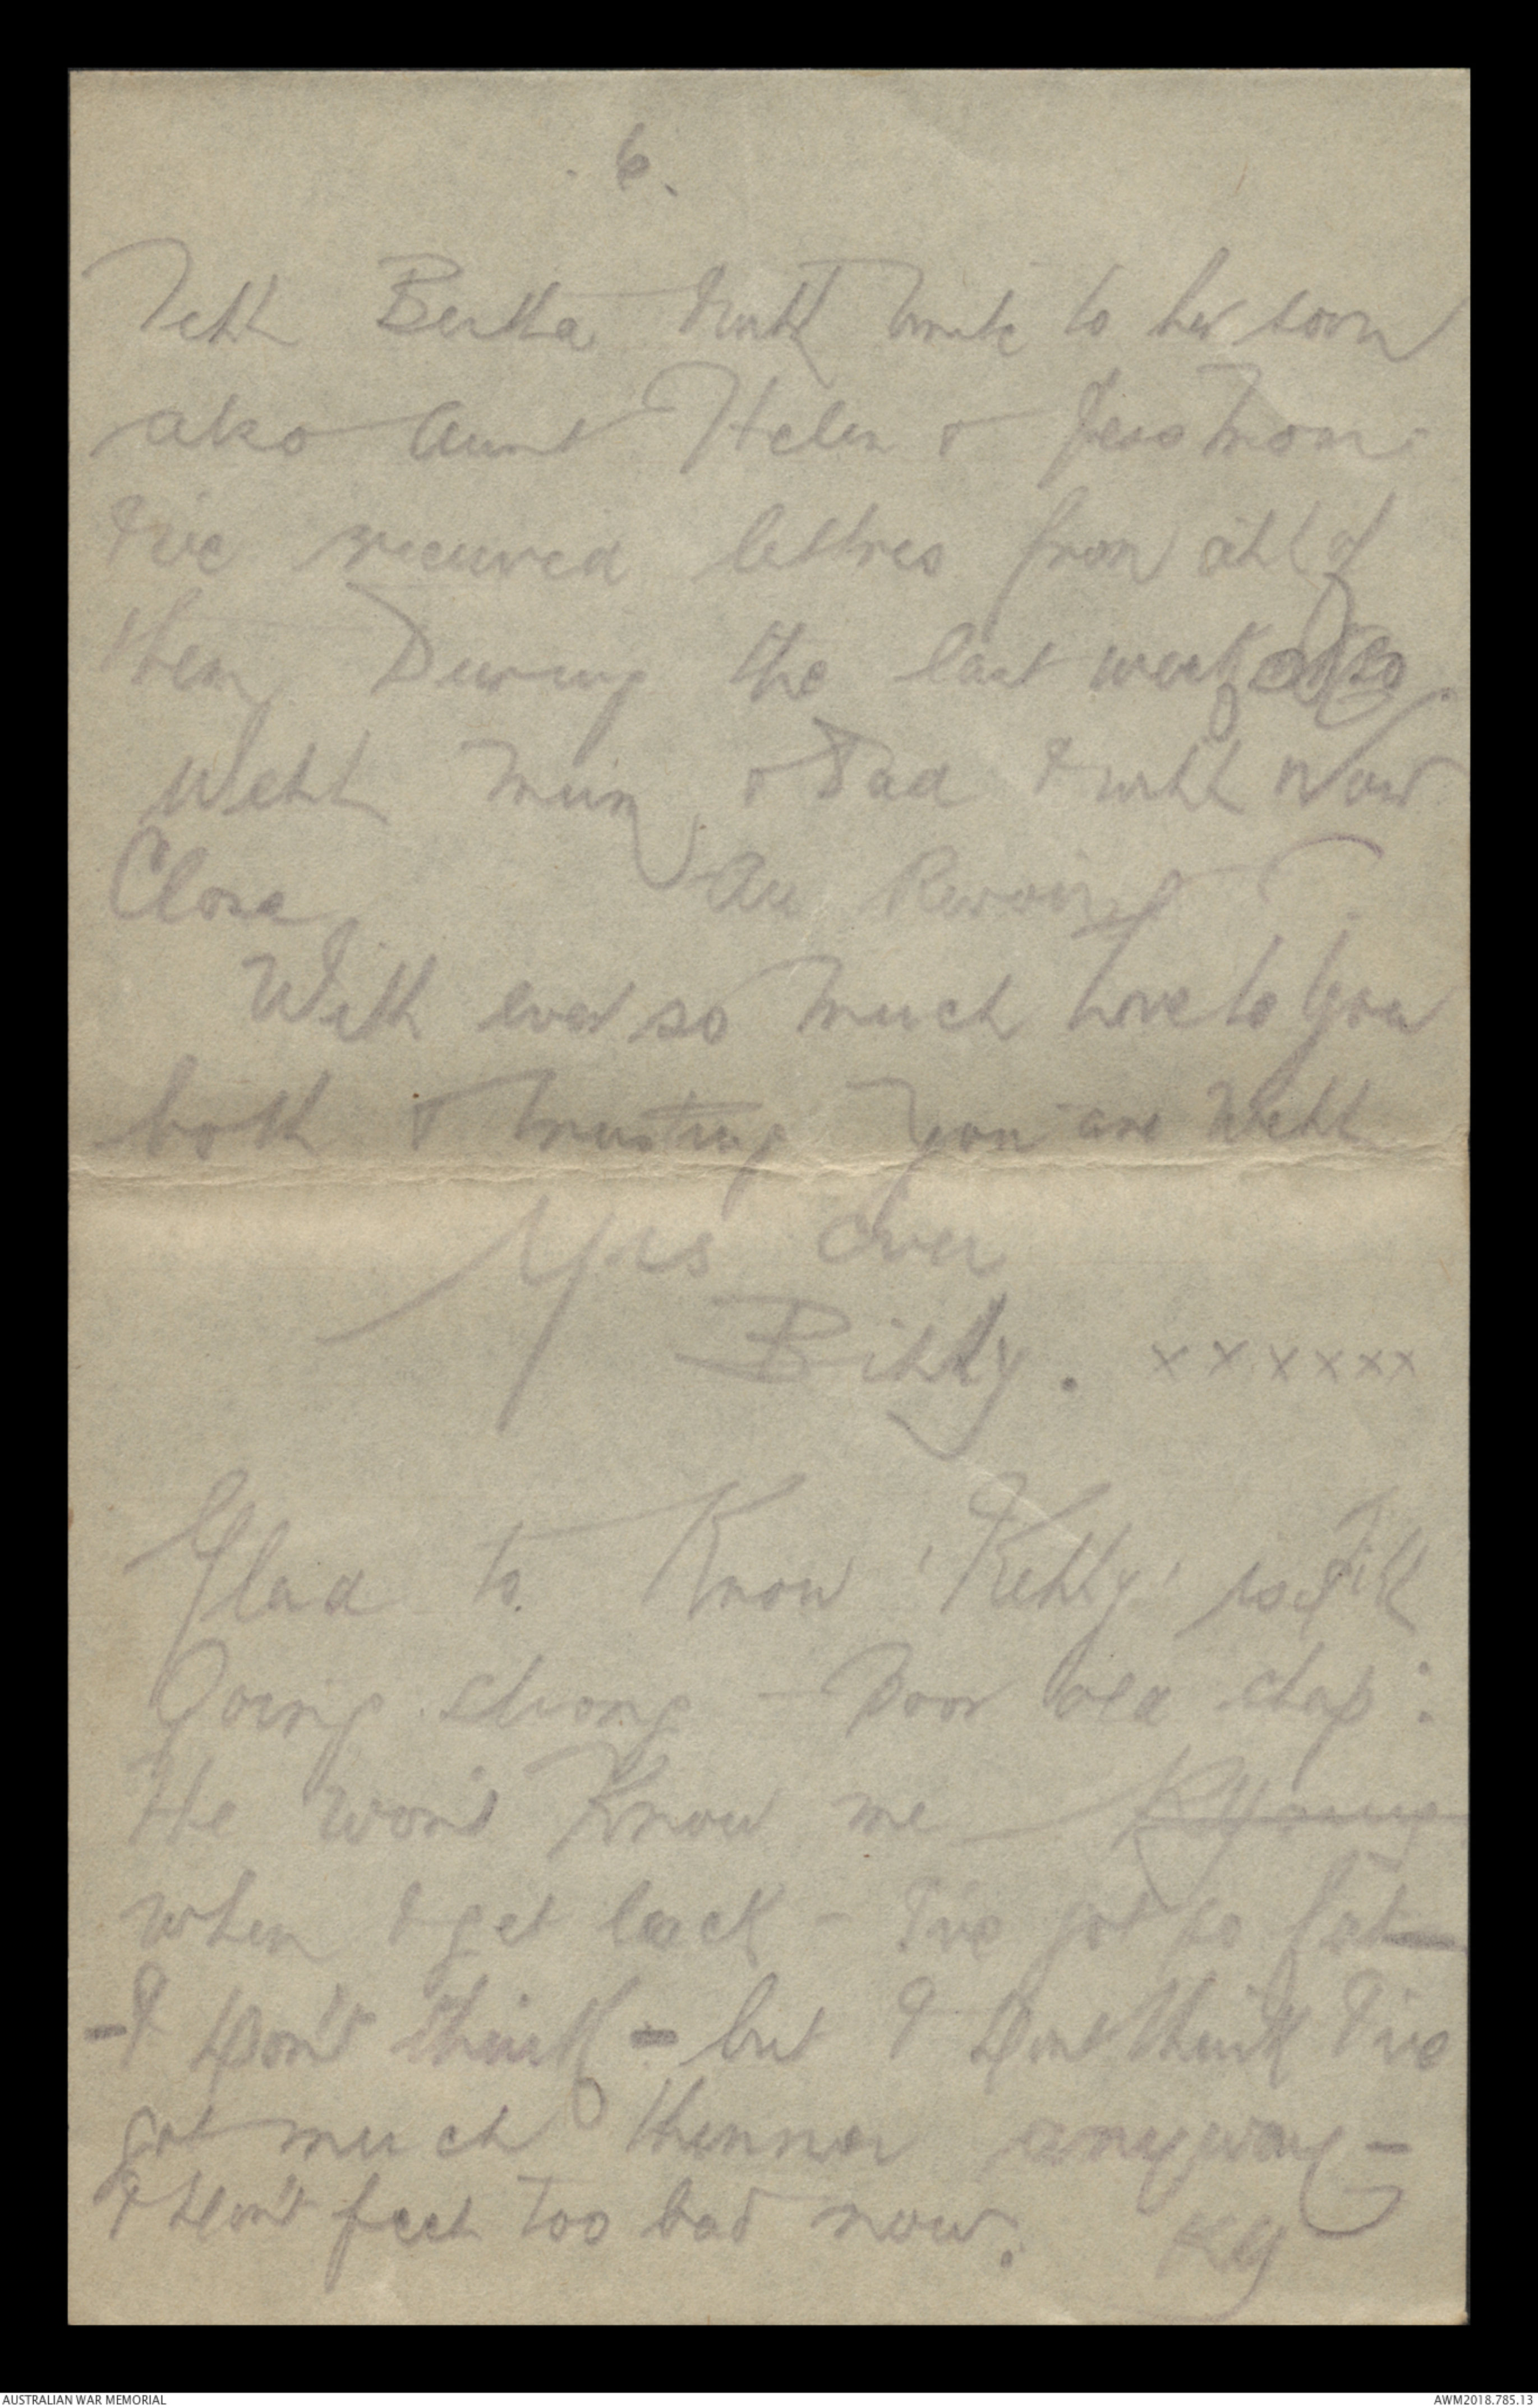 . 6.
Tell Bertha I will write to her soon
also Aunt Helen & Jess
I've received letters from all of
them During the last week also.
Well Mum & Dad I will now
Close Au Revoir
With ever so much love to you
both & trusting you are Well
Yrs ever
Billy. xxxxxx
Glad to Know 'Kelly' is still
Going strong - Poor old chap:
He won't Know me
when I get back - I've got so fat -
- I Don't think - but I Dont think I've
got much thinner anyway -
I Don't feel too bad now. KY
AUSTRALIAN WAR MEMORIAL
AWM2018.785.13